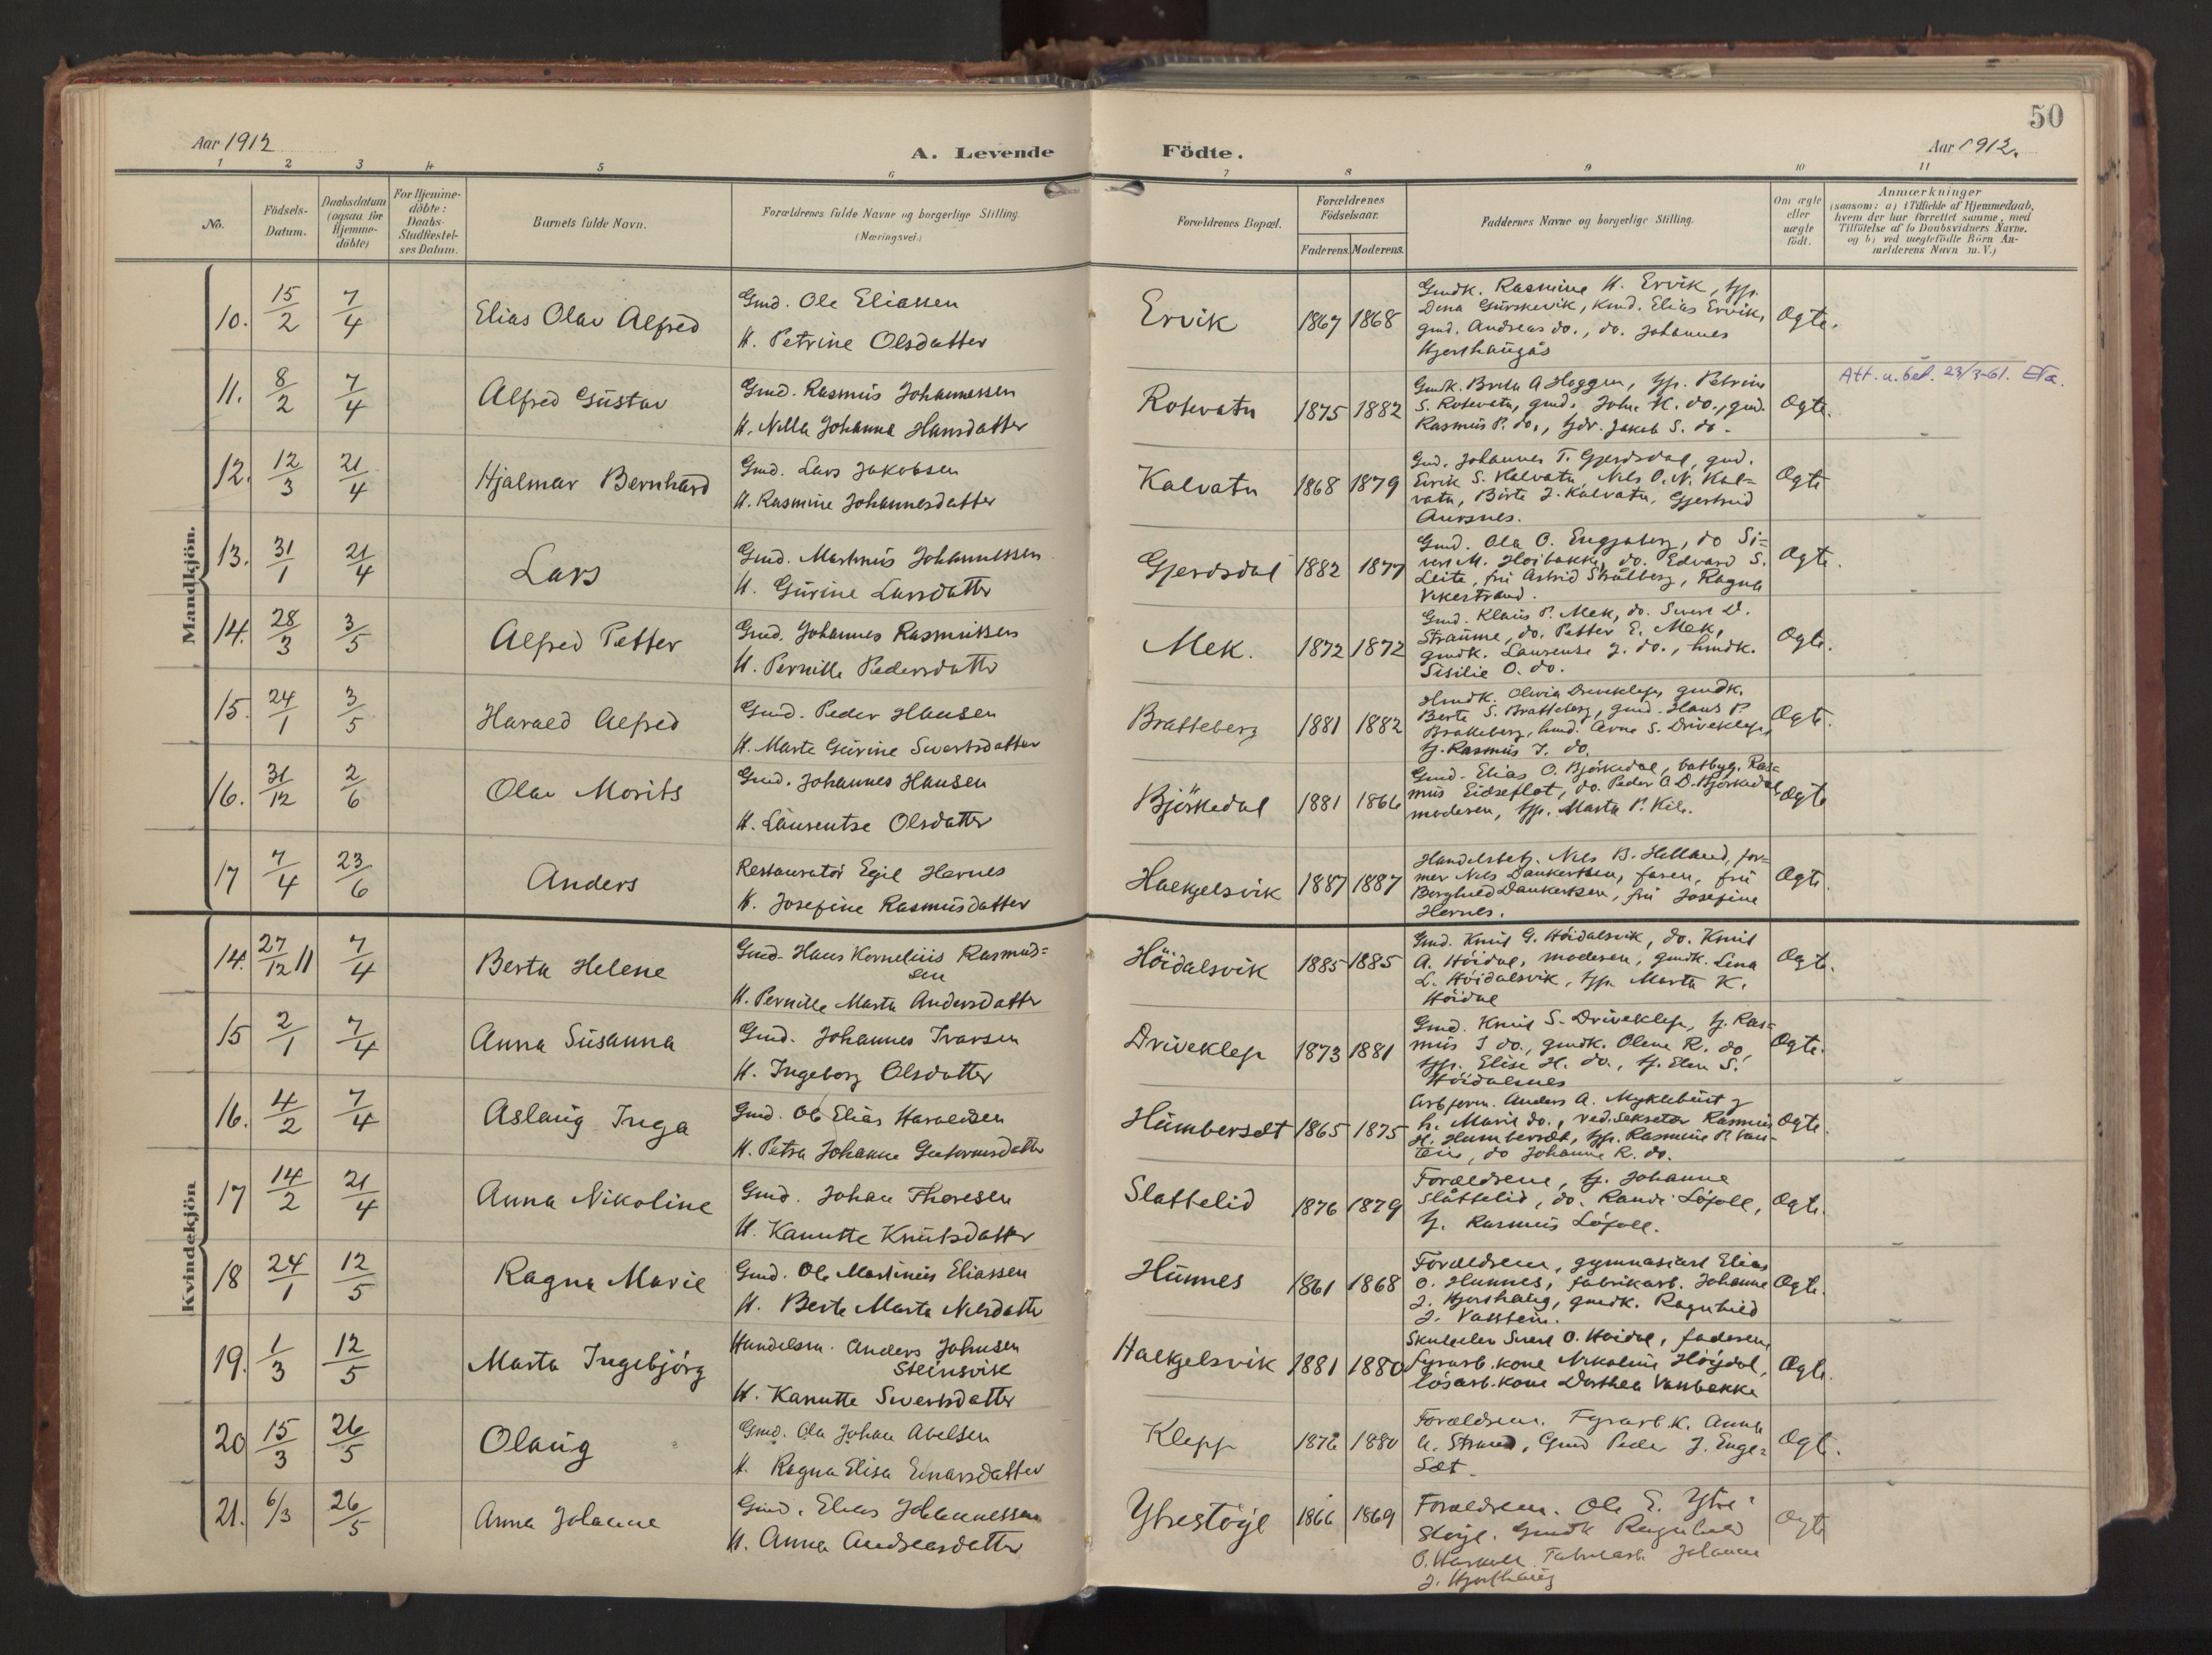 50
Aar 1912
A. Levende Födte.
Aar 1912.
1 2 3 4 5 6 7 8 9 10 11
No.
Födsels-Datum.
Daabsdatum (ogsaa for Hjemme-döbte)
For Hjemme-döbte: Daabs-Stadfæstel-ses Datum.
Barnets fulde Navn.
Forældrenes fulde Navne og borgerlige Stilling (Næringsvei.)
Forældrenes Bopæl.
Forældrenes Födselsaar.
Faderens. Moderens.
Faddernes Navne og borgerlige Stilling.
Om ægte eller uægte födt.
Anmærkninger
(saasom: a) i Tilfælde af Hjemmedaab, hvem der har forrettet samme, med Tilföielse af to Daabsvidners Navne, og b) ved uegtefödte Börn An-melderens Navn m. V.)
Mandkjön.
10. 15/2 7/4 Elias Olav Alfred
Gmd. Ole Eliassen
H. Petrine Olsdatter
Ervik 1867 1868
Gmdk. Rasmine H. Ervik, Gp.
Dina Gurskevik, Kmd. Elias Ervik,
gmd. Andreas do., do. Johannes
Hjorthaugås
Ogte.
11. 8/2 7/4 Alfred Gustav
Gmd. Rasmus Johannessen
H. Nilla Johanna Hansdatter
Rotevatn 1875 1882
S. Rotevatn, gmd. John K. do., gmd.
Rasmus P. do., Gdr. Jakob S. do.
Ogte.
Att. u. bet. 23/3-61.
12. 12/3 21/4 Hjalmar Bernhard
Gmd. Lars Jakobsen
H. Rasmine Johannesdatter
Kalvatn 1868 1879
Gmd. Johannes T. Gjerdsdal, gmd.
Eirik S. Kalvatn, Nils O. N. Kal-
vatn, Birte J. Kalvatn, Gjertrud
Aursnes.
Ogte
13. 31/1 21/4 Lars
Gmd. Martinus Johannessen
H. Gurine Larsdatter
Gjerdsdal 1882 1877
Gmd. Ola O. Engjaberg, do Si-
vert M. Hoibakk, do. Edvard S.
Leite, fru Astrid Strålberg, Ragna
Vikestrand.
Ogte.
14. 28/3 3/5 Alfred Petter
Gmd. Johannes Rasmussen
H. Pernille Pedersdatter
Mek. 1872 1872
Gmd. Klaus P. Mek, do. Sivert D.
Straume, do. Petter E. Mek,
gmdk. Laurense J. do., hmdk.
Sisilie O. do.
Ogte.
15. 24/1 3/5 Harald Alfred
Gmd. Peder Hansen
H. Marte Gurine Sivertsdatter
Bratteberg 1881 1882
Hmdk. Olivia Driveklep, gmdk.
Berte S. Bratteberg, gmd. Hans P.
Bratteberg, hmd. Arne S. Driveklep,
G. Rasmus I. do.
Ogte.
16. 31/12 2/6 Olav Morits
Gmd. Johannes Hansen
H. Laurentse Olsdatter
Björkedal 1881 1866
Gmd. Elias O. Björkedal, batbyg. Ras-
mus Eidseflot, do. Peder A. D. Björkedal,
moderen, Gp. Marta P. Kile.
Ogte
17 7/4 23/6 Anders
Restauratör Egil Hernes
H. Josefine Rasmusdatter
Haegelsvik 1887 1887
Handelsbetj. Nils B. Helland, for-
mer Nils Dankertsen, faren, fru
Borghild Dankertsen, fru Josefine
Hernes.
Ogte.
Kvindekjön
14. 27/12 11 7/4 Berta Helene
Gmd. Hans Kornelius Rasmus-
sen
H. Pernille Marta Andersdatter
Höidalsvik 1885 1885
Gmd. Knut G. Höidalsvik, do. Knut
A. Höidal, moderen, gmdk. Lina
L. Höidalsvik, Gp. Marta K.
Höidal
Ogte.
15 2/1 7/4 Anna Susanna
Gmd. Johannes Ivarsen
H. Ingeborg Olsdatter
Driveklep 1873 1881
Gmd. Knut S. Driveklep, G. Ras-
mus I do., gmdk. Olene R. do,
Gp. Elise H. do., G. Elen S.
Höidalsnes
Ogte.
16. 4/2 7/4 Aslaug Inga
Gmd. Ole Elias Haraldsen
H. Petra Johanne Guttormsdatter
Humberset 1865 1875
Arbform. Anders A. Myklebust g
h. Marie do., ved. Sekretær Rasmus
H. Humberset, Gp. Rasmine P.
do Johanne R. do.
Ogte.
17 14/2 21/4 Anna Nikoline
Gmd. Johan Thoresen
H. Kanutte Knutsdatter
Slattelid 1876 1879
Forældrene, G. Johanne
Slåttelid, do. Randi Löfoll,
G. Rasmus Löfoll.
Ogte.
18 24/1 12/5 Ragna Marie
Gmd. Ole Martinius Eliassen
H. Berte Marta Nilsdatter
Hunnes 1861 1868
Forældrene, gymnasiast Elias
O. Hunnes, fabrikarb. Johanne
J. Hjorthaug, gmdk. Ragnhild
J. Vatstein.
Ogte.
19. 1/3 12/5 Marta Ingebjörg
Handelsm. Anders Johnsen
Steinsvik
H. Kanutte Sivertsdatter
Haegelsvik 1881 1880
Skuleelev Sivert O. Höidal, faderen,
Fyrarb. kone Nikoline Höydal,
lösarb. kone Dorthea Vanbakke
Ogte.
20 15/3 26/5 Olaug
Gmd. Ola Johan Abelsen
H. Ragna Elisa Einarsdatter
Klepp 1876 1880
Forældrene. Fyrarb. K. Anna
A. Strand, Gmd Peder J. Enge-
Set.
Ogte.
21. 6/3 26/5 Anna Johanne
Gmd. Elias Johannessen
H. Anna Andreasdatter
Ytrestöyl 1866 1869
Forældrene. Ole E. Ytre-
Stöyl. Gmdk Ragnhild
Fabrikarb. Johanne
J. Hjorthaug
Ogte